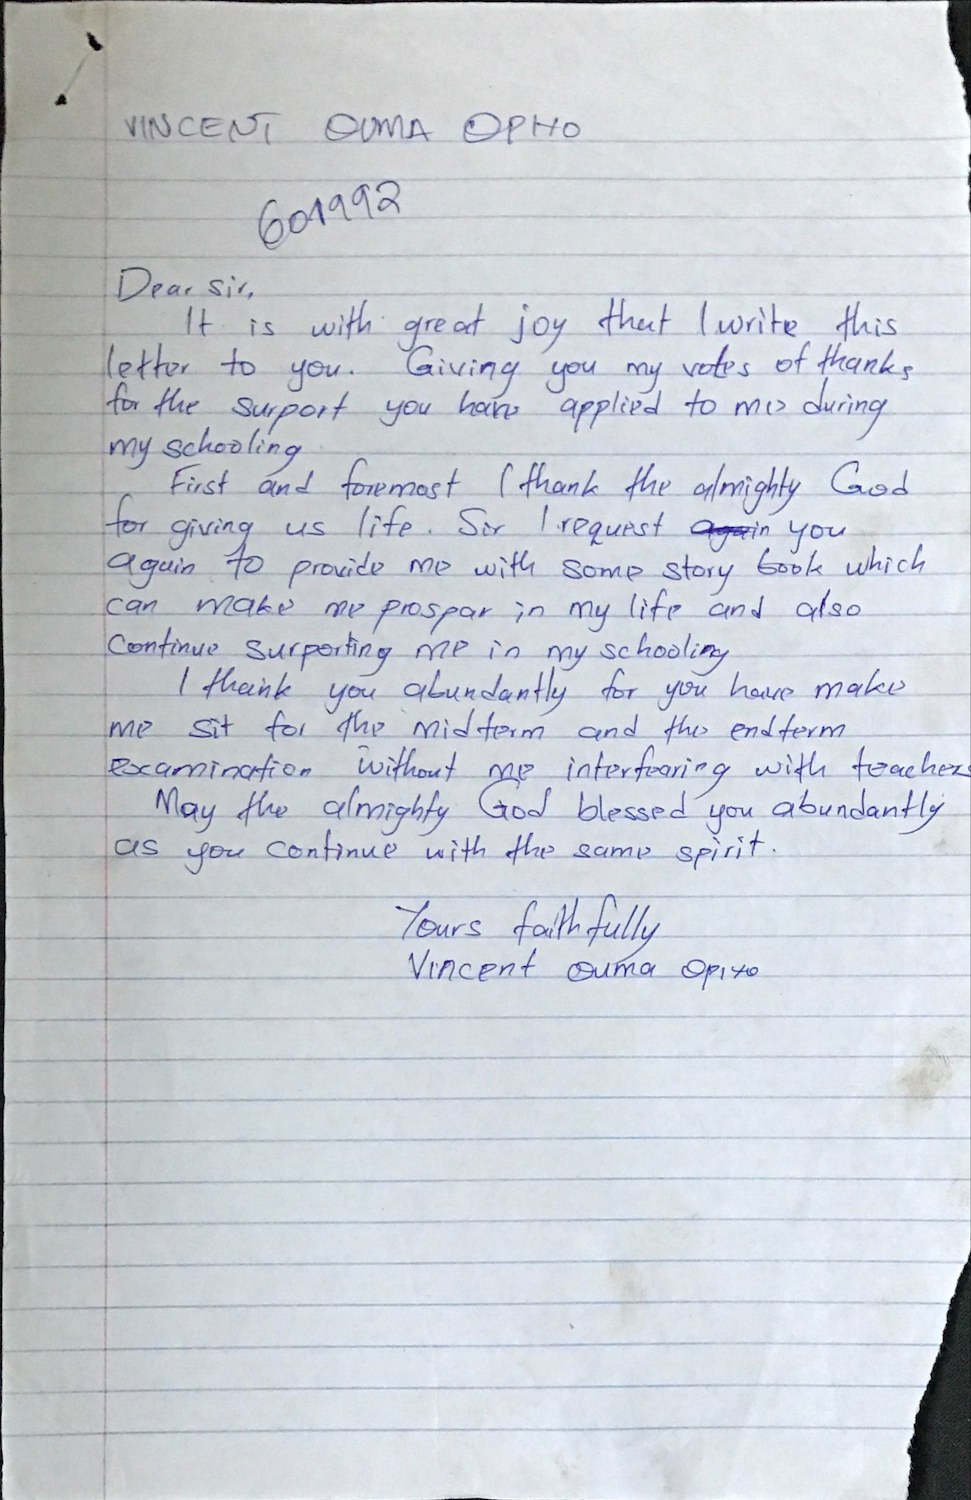 VINCENT OUMA OPIYO
601992
Dear sir,
It is with great joy that I write this
letter to you. Giving you my votes of thanks
for the surport you have applied to me during
my schooling
First and foremost I thank the almighty God
for giving us life. Sir I request again you
again to provide me with some story book which
can make me prospar in my life and also
continue surporting me in my schooling
I thank you abundantly for you have make
me sit for the midterm and the endterm
examination without me interfearing with teachers
May the almighty God blessed you abundantly
as you continue with the same spirit.
Yours faithfully
Vincent Ouma Opiyo